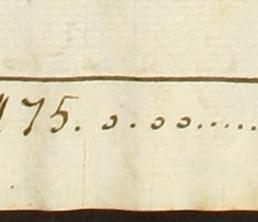 175. 0. 00......